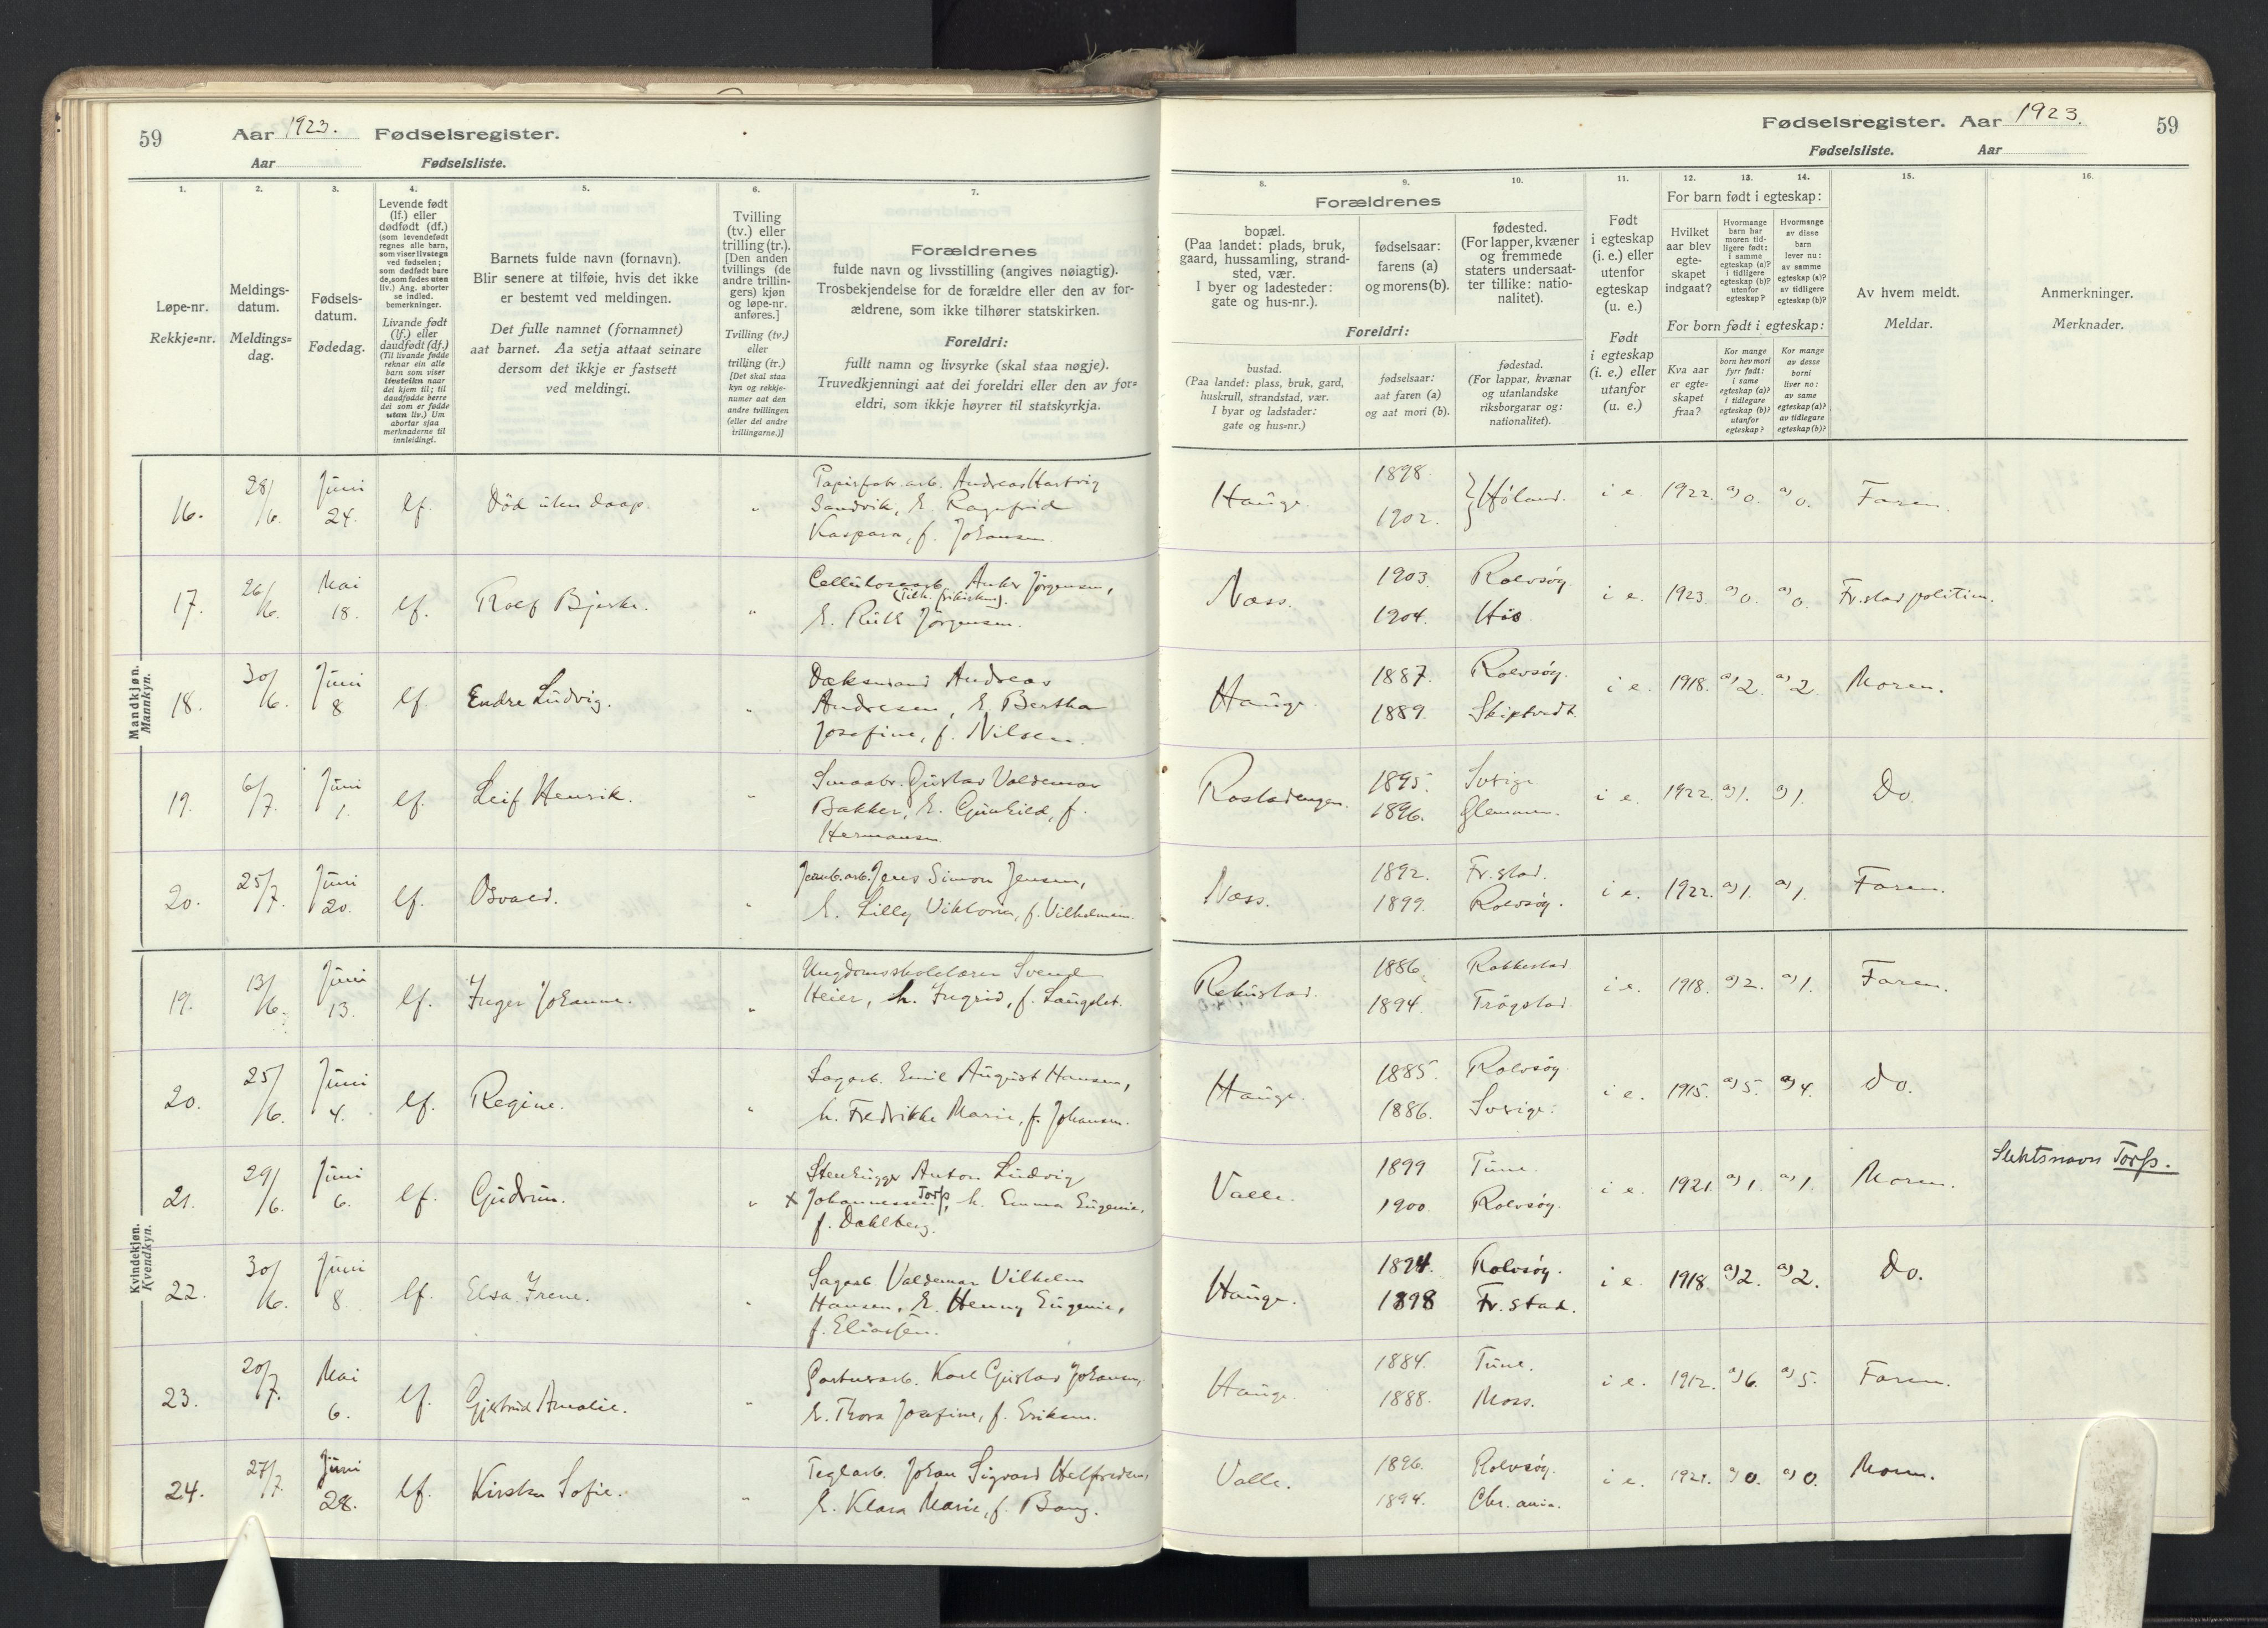 59
Aar 1923. Fødselsregister.
Aar Fødselsliste.
Fødselsregister. Aar 1923.
59
Fødselsliste. Aar
1.
Løpe-nr.
Rekkje=nr.
2.
Meldings-
datum.
Meldings=
dag.
3.
Fødsels-
datum.
Fødedag.
4.
Levende født
(lf.) eller
dødfødt (df.)
(som levendefødt
regnes alle barn,
som viser livstegn
ved fødselen;
som dødfødt bare
de, som fødes uten
liv.) Ang. aborter
se indled.
bemerkninger.
Livande født
(lf.) eller
daudfødt (df.)
(Til livande fødde
reknar ein alle
barn som viser
livsteikn naar
dei kjem til; til
daudfødde berre
dei som er fødde
utan liv.) Um
abortar sjaa
merknaderne til
innleidingi.
5.
Barnets fulde navn (fornavn).
Blir senere at tilføie, hvis det ikke
er bestemt ved meldingen.
Det fulle namnet (fornamnet)
aat barnet. Aa setja attaat seinare
dersom det ikkje er fastsett
ved meldingi.
6.
Tvilling
(tv.) eller
trilling (tr.).
[Den anden
tvillings (de
andre trillin-
gers) kjøn
og løpe-nr.
anføres.]
Tvilling (tv.)
eller
trilling (tr.)
[Det skal staa
kyn og rekkje-
numer aat den
andre tvillingen
(eller dei andre
trillingarne.)]
7.
Forældrenes
fulde navn og livsstilling (angives nøiagtig).
Trosbekjendelse for de forældre eller den av for-
ældrene, som ikke tilhører statskirken.
Foreldri:
fullt namn og livsyrke (skal staa nøgje).
Truvedkjenningi aat dei foreldri eller den av for=
eldri, som ikkje høyrer til statskyrkja.
Forældrenes
8.
bopæl.
(Paa landet: plads, bruk,
gaard, hussamling, strand-
sted, vær.
I byer og ladesteder:
gate og hus-nr.).
9.
fødselsaar:
farens (a)
og morens (b).
10.
fødested.
(For lapper, kvæner
og fremmede
staters undersaat-
ter tillike: natio-
nalitet).
Foreldri:
bustad.
(Paa landet: plass, bruk, gard,
huskrull, strandstad, vær.
I byar og ladstader:
gate og hus=nr.)
fødselsaar:
aat faren (a)
og aat mori (b).
fødestad.
(For lappar, kvænar
og utanlandske
riksborgarar og:
nationalitet).
11.
Født
i egteskap
(i. e.) eller
utenfor
egteskap
(u. e.)
Født
i egteskap
(i. e.) eller
utanfor
(u. e.)
12. 13. 14.
For barn født i egteskap:
Hvilket
aar blev
egte-
skapet
indgaat?
Hvormange
barn har
moren tid-
ligere født:
i samme
egteskap (a)?
i tidligere
egteskap (b)?
utenfor
egteskap?
Hvormange
av disse
barn
lever nu:
av samme
egteskap (a)?
av tidligere
egteskap (b)?
For born født i egteskap:
Kva aar
er egte-
skapet
fraa?
Kor mange
born hev mori
fyrr født:
i same
egteskap (a)?
i tidlegare
egteskap (b)?
utanfor
egteskap?
Kor mange
av desse
borni
liver no:
av same
egteskap (a)?
av tidlegare
egteskap (b)?
15.
Av hvem meldt.
Meldar.
16.
Anmerkninger.
Merknader.
Mandkjøn.
Mannkyn.
16. 28/6. Juni 24. lf. Død uten daap. "
Papirfabr.arb. Andreas Hartvig
Sandvik, h. Ragnfrid
Kaspara, f. Johansen.
Hauge. 1898. 1902. Høland. i e. 1922. a) 0. a) 0. Faren.
17. 26/6. Mai 18. lf. Rolf Bjerke. "
Cellulosearb. Anker Jørgensen,
(Tilh. frikirken).
h. Ruth Jørgensen.
Næss. 1903. Rolvsøy 1904. His. i e. 1923. a) 0. a) 0. Fr.stad politik.
18. 30/6. Juni 8. lf. Endre Ludvig. "
Dæksmand Andreas
Andresen, h. Bertha
Josefine, f. Nilsen.
Hauge. 1887. Rolvsøy. 1889. Skiptvedt. i e. 1918. a) 2. a) 2. Moren.
19. 6/7. Juni 1. lf. Leif Henrik. "
Smaabr. Gustav Valdemar
Bakker, h. Gunhild, f.
Hermansen.
Rostadengen. 1895. Sverige 1896. Glemmen. i e. 1922. a) 1. a) 1. Do.
20. 25/7. Juni 20. lf. Osvald. "
Jernb.arb. Jens Simon Jensen,
h. Lilly Viktoria, f. Vilhelmsen.
Næss. 1892. Fr.stad. 1899. Rolvsøy. i e. 1922. a) 1. a) 1. Faren.
Kvindekjøn.
Kvendkyn.
19. 13/6. Juni 13. lf. Inger Johanne. "
Ungdomsskolelærer Svend
Heier, h. Ingrid, f. Langslet.
Rekustad. 1886. Rakkestad 1894. Trøgstad. i e. 1918. a) 2. a) 1. Faren.
20. 25/6. Juni 4. lf. Regine. "
Sagarb. Emil August Hansen,
h. Fredrikke Marie, f. Johansen.
Hauge. 1885. Rolvsøy. 1886. Sverige. i e. 1915. a) 5. a) 4. Do.
21. 29/6. Juni 6. lf. Gudrun. "
Stenhugger Anton Ludvig
x Johannessen Torp, h. Emma Eugenie,
f. Dahlberg.
Valle. 1899 Tune. 1900. Rolvsøy. i e. 1921. a) 1. a) 1. Moren. Slektsnavn Torp.
22. 30/6. Juni 8. lf. Elsa Irene. "
Sagarb. Valdemar Vilhelm
Hansen, h. Henny Eugenie,
f. Eliassen.
Hauge. 1894. Rolvsøy. 1898 Fr.stad. i e. 1918. a) 2. a) 2. Do.
23. 20/7. Mai 6. lf. Gjertrud Amalie. "
Karl Gustav Johansen,
h. Thora Josefine, f. Eriksen.
Hauge. 1884. Tune. 1888. Moss. i e. 1912. a) 6. a) 5. Faren.
24. 27/7. Juni 28. lf. Kirsten Sofie. "
Teglarb. Johan Sigvard Helfredsen,
h. Klara Marie, f. Bang.
Valle. 1896. Rolvsøy. 1894. Chr.ania. i e. 1921. a) 0. a) 0. Moren.